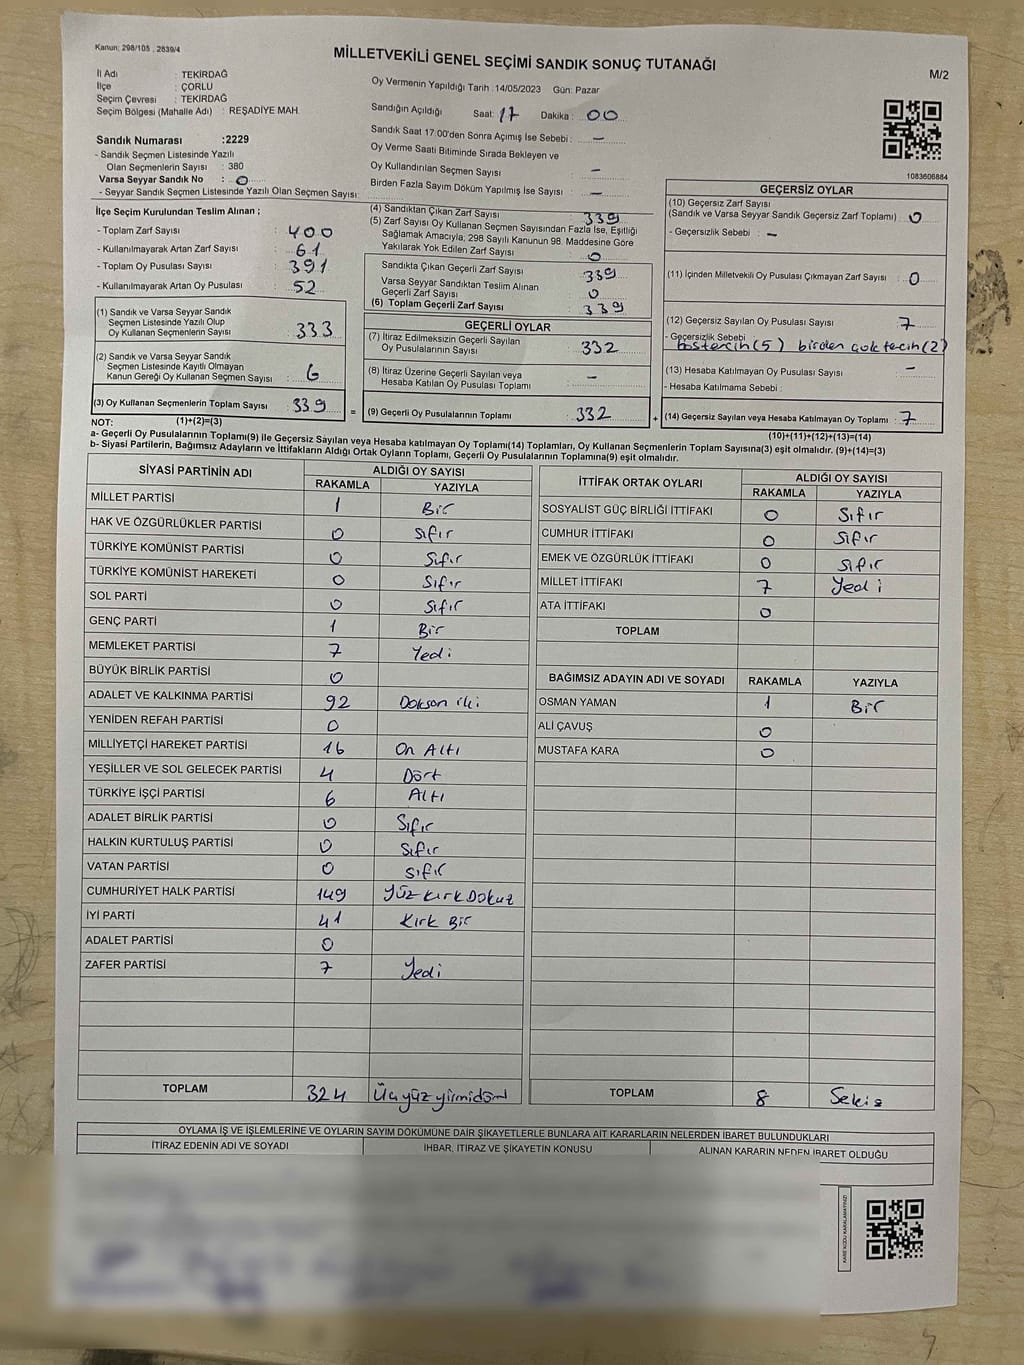 Kanun: 298/105 , 2839/4
MİLLETVEKİLİ GENEL SEÇİMİ SANDIK SONUÇ TUTANAĞI
M/2
İl Adı : TEKİRDAĞ
İlçe : ÇORLU
Seçim Çevresi : TEKİRDAĞ
Seçim Bölgesi (Mahalle Adı) : REŞADİYE MAH.
Oy Vermenin Yapıldığı Tarih :14/05/2023 Gün: Pazar
Sandığın Açıldığı Saat: 17 Dakika : 00
Sandık Saat 17:00'den Sonra Açımış İse Sebebi : –
Oy Verme Saati Bitiminde Sırada Bekleyen ve
Oy Kullandırılan Seçmen Sayısı : –
Birden Fazla Sayım Döküm Yapılmış İse Sayısı : –
Sandık Numarası :2229
- Sandık Seçmen Listesinde Yazılı
Olan Seçmenlerin Sayısı : 380
Varsa Seyyar Sandık No : 0
- Seyyar Sandık Seçmen Listesinde Yazılı Olan Seçmen Sayısı:
1083606884
İlçe Seçim Kurulundan Teslim Alınan ;
- Toplam Zarf Sayısı : 400
- Kullanılmayarak Artan Zarf Sayısı : 61
- Toplam Oy Pusulası Sayısı : 391
- Kullanılmayarak Artan Oy Pusulası : 52
(1) Sandık ve Varsa Seyyar Sandık
Seçmen Listesinde Yazılı Olup
Oy Kullanan Seçmenlerin Sayısı : 333
(2) Sandık ve Varsa Seyyar Sandık
Seçmen Listesinde Kayıtlı Olmayan
Kanun Gereği Oy Kullanan Seçmen Sayısı : 6
(3) Oy Kullanan Seçmenlerin Toplam Sayısı : 339
(4) Sandıktan Çıkan Zarf Sayısı : 339
(5) Zarf Sayısı Oy Kullanan Seçmen Sayısından Fazla İse, Eşitliği
Sağlamak Amacıyla, 298 Sayılı Kanunun 98. Maddesine Göre
Yakılarak Yok Edilen Zarf Sayısı : 0
Sandıkta Çıkan Geçerli Zarf Sayısı : 339
Varsa Seyyar Sandıktan Teslim Alınan
Geçerli Zarf Sayısı : 0
(6) Toplam Geçerli Zarf Sayısı : 339
GEÇERLİ OYLAR
(7) İtiraz Edilmeksizin Geçerli Sayılan
Oy Pusulalarının Sayısı : 332
(8) İtiraz Üzerine Geçerli Sayılan veya
Hesaba Katılan Oy Pusulası Toplamı : –
= (9) Geçerli Oy Pusulalarının Toplamı : 332 +
GEÇERSİZ OYLAR
(10) Geçersiz Zarf Sayısı
(Sandık ve Varsa Seyyar Sandık Geçersiz Zarf Toplamı) : 0
- Geçersizlik Sebebi : –
(11) İçinden Milletvekili Oy Pusulası Çıkmayan Zarf Sayısı : 0
(12) Geçersiz Sayılan Oy Pusulası Sayısı : 7
- Geçersizlik Sebebi : bostercih(5) birden çok tercih(2)
(13) Hesaba Katılmayan Oy Pusulası Sayısı : –
- Hesaba Katılmama Sebebi :
(14) Geçersiz Sayılan veya Hesaba Katılmayan Oy Toplamı : 7
NOT: (1)+(2)=(3) (10)+(11)+(12)+(13)=(14)
a- Geçerli Oy Pusulalarının Toplamı(9) ile Geçersiz Sayılan veya Hesaba katılmayan Oy Toplamı(14) Toplamları, Oy Kullanan Seçmenlerin Toplam Sayısına(3) eşit olmalıdır. (9)+(14)=(3)
b- Siyasi Partilerin, Bağımsız Adayların ve İttifakların Aldığı Ortak Oyların Toplamı, Geçerli Oy Pusulalarının Toplamına(9) eşit olmalıdır.
SİYASİ PARTİNİN ADI ALDIĞI OY SAYISI
RAKAMLA YAZIYLA
MİLLET PARTİSİ 1 Bir
HAK VE ÖZGÜRLÜKLER PARTİSİ 0 Sıfır
TÜRKİYE KOMÜNİST PARTİSİ 0 Sıfır
TÜRKİYE KOMÜNİST HAREKETİ 0 Sıfır
SOL PARTİ 0 Sıfır
GENÇ PARTİ 1 Bir
MEMLEKET PARTİSİ 7 Yedi
BÜYÜK BİRLİK PARTİSİ 0
ADALET VE KALKINMA PARTİSİ 92 Doksan iki
YENİDEN REFAH PARTİSİ 0
MİLLİYETÇİ HAREKET PARTİSİ 16 On Altı
YEŞİLLER VE SOL GELECEK PARTİSİ 4 Dört
TÜRKİYE İŞÇİ PARTİSİ 6 Altı
ADALET BİRLİK PARTİSİ 0 Sıfır
HALKIN KURTULUŞ PARTİSİ 0 Sıfır
VATAN PARTİSİ 0 Sıfır
CUMHURİYET HALK PARTİSİ 149 Yüz Kırk Dokuz
İYİ PARTİ 41 Kırk Bir
ADALET PARTİSİ 0
ZAFER PARTİSİ 7 Yedi
TOPLAM 324 Üçyüz yirmidört
İTTİFAK ORTAK OYLARI ALDIĞI OY SAYISI
RAKAMLA YAZIYLA
SOSYALİST GÜÇ BİRLİĞİ İTTİFAKI 0 Sıfır
CUMHUR İTTİFAKI 0 Sıfır
EMEK VE ÖZGÜRLÜK İTTİFAKI 0 Sıfır
MİLLET İTTİFAKI 7 Yedi
ATA İTTİFAKI 0
TOPLAM
BAĞIMSIZ ADAYIN ADI VE SOYADI RAKAMLA YAZIYLA
OSMAN YAMAN 1 Bir
ALİ ÇAVUŞ 0
MUSTAFA KARA 0
TOPLAM 8 Sekiz
OYLAMA İŞ VE İŞLEMLERİNE VE OYLARIN SAYIM DÖKÜMÜNE DAİR ŞİKAYETLERLE BUNLARA AİT KARARLARIN NELERDEN İBARET BULUNDUKLARI
İTİRAZ EDENİN ADI VE SOYADI İHBAR, İTİRAZ VE ŞİKAYETİN KONUSU ALINAN KARARIN NEDEN İBARET OLDUĞU
KARE KODU KARALAMAYINIZ!